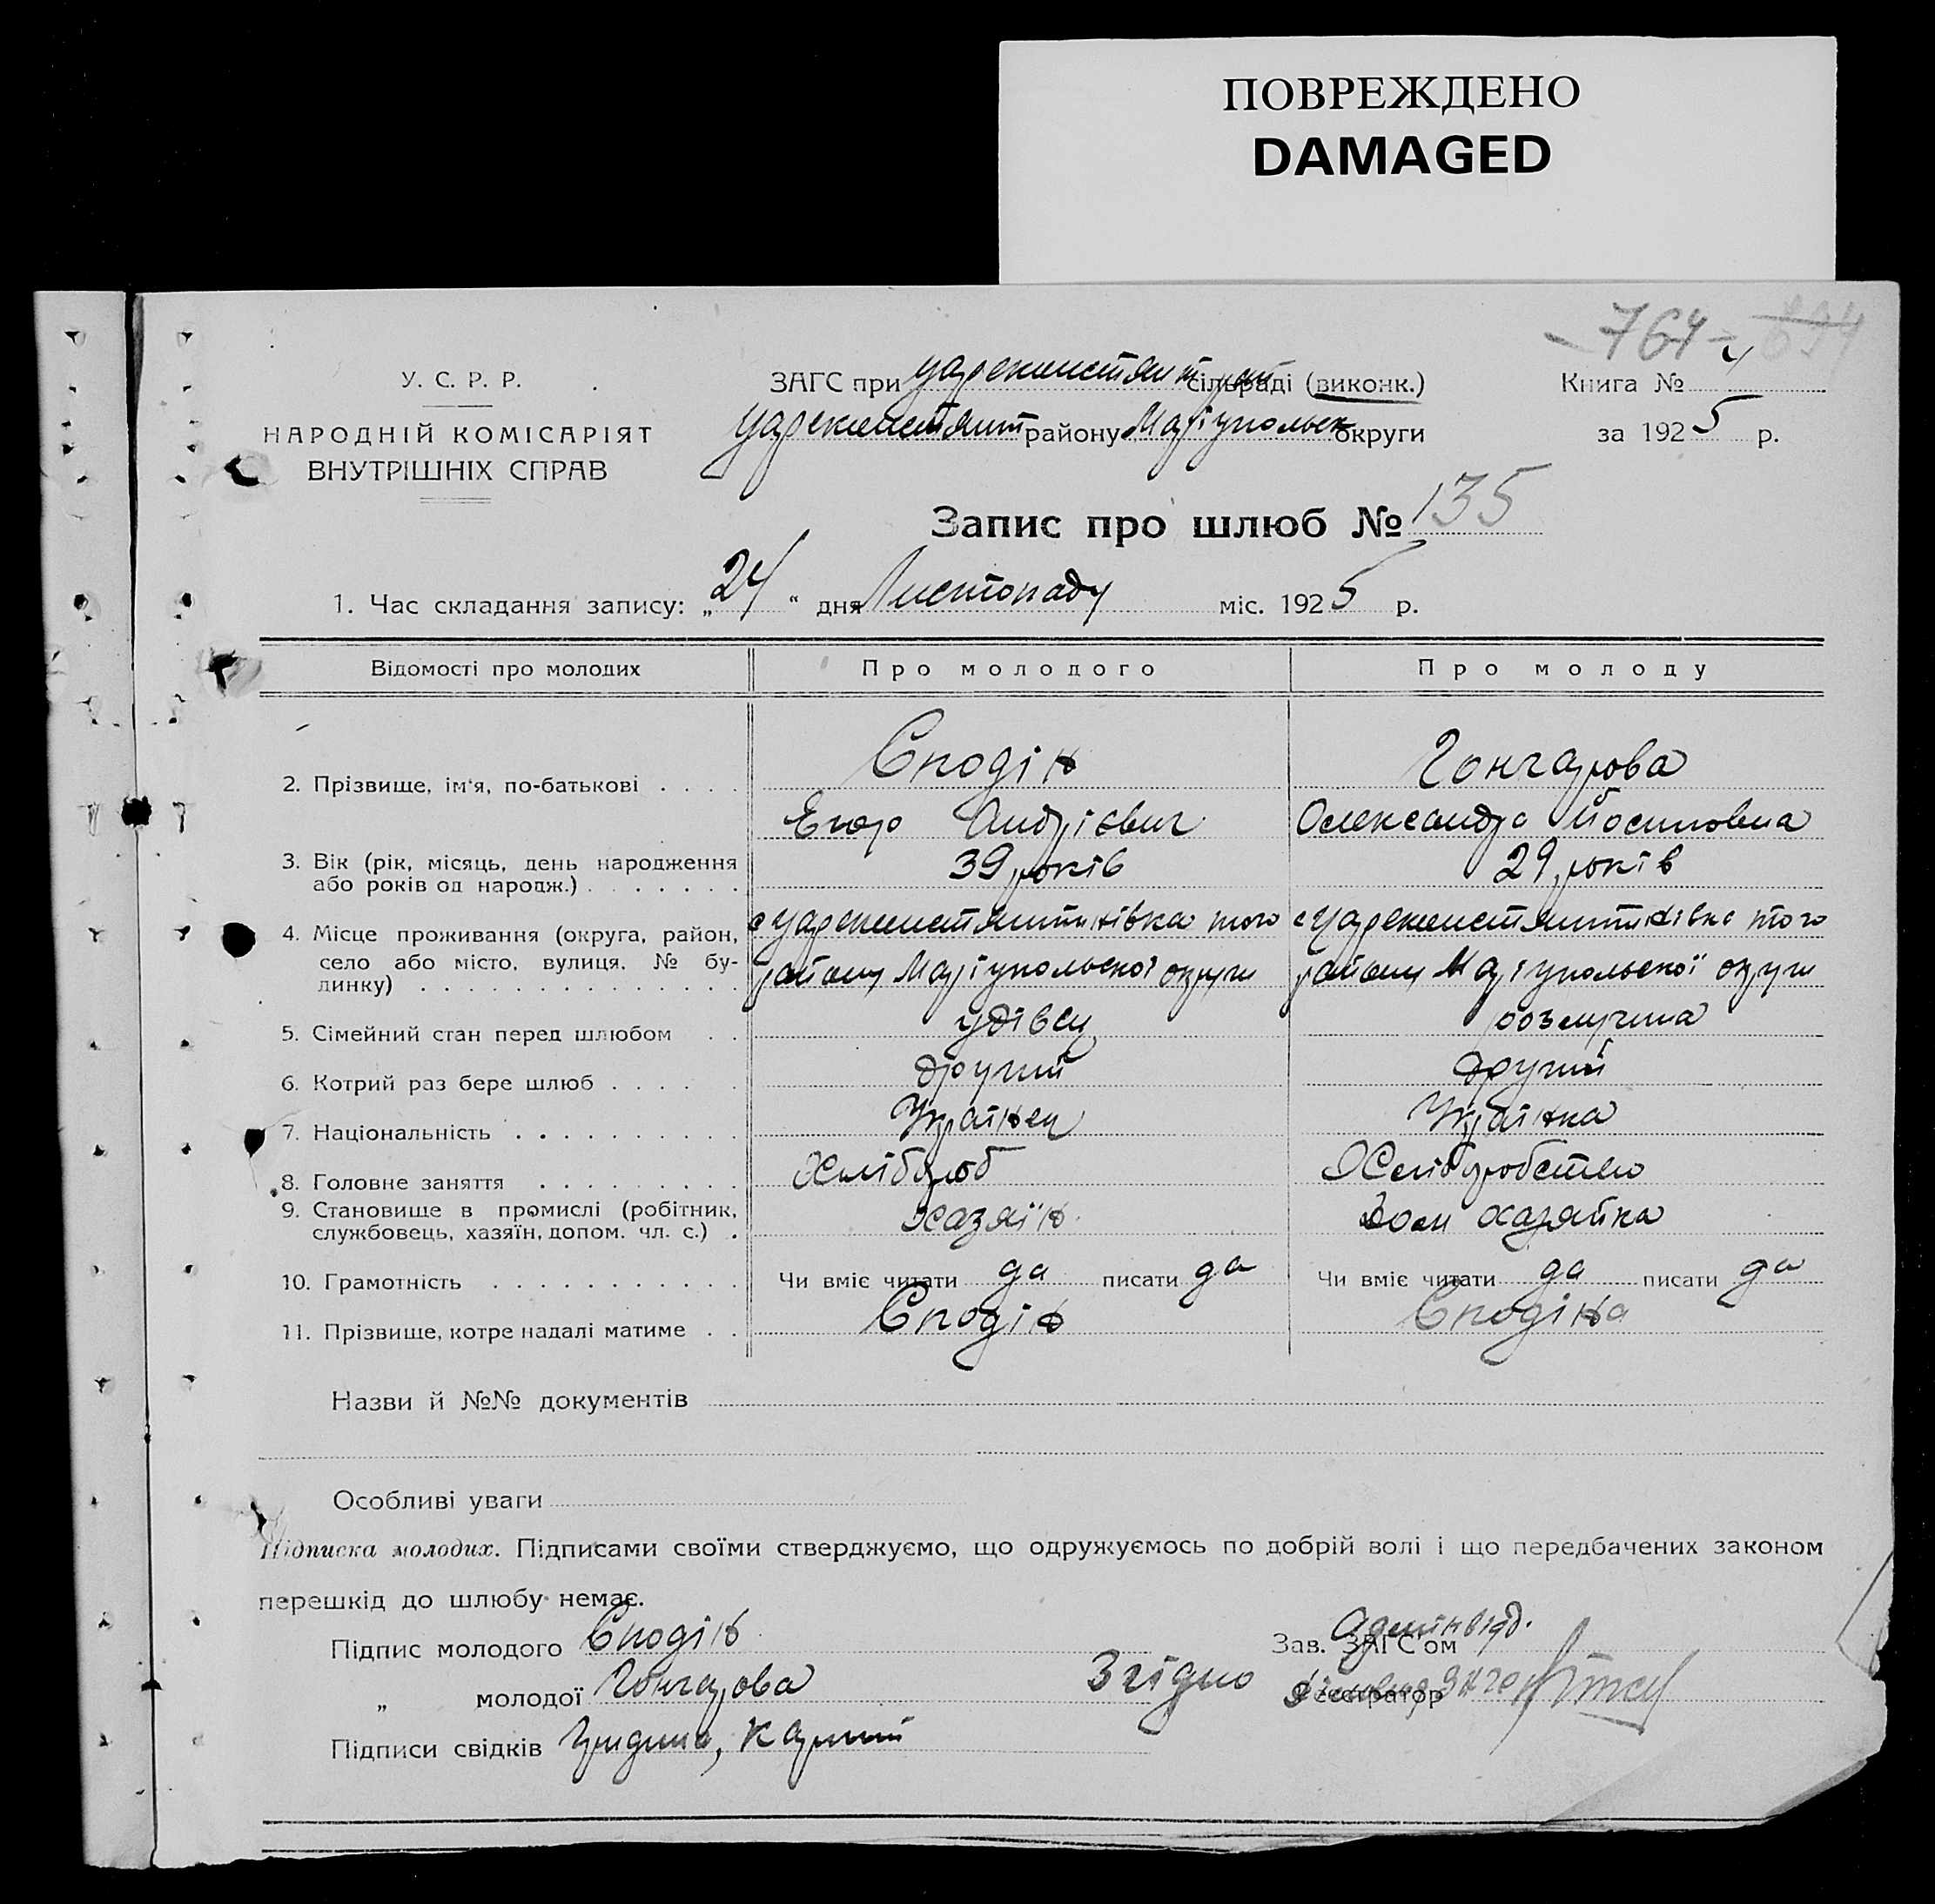 ПОВРЕЖДЕНО
DAMAGED
764
У. С. Р. Р.
НАРОДНІЙ КОМІСАРІЯТ
ВНУТРІШНІХ СПРАВ
ЗАГС при Царекостянт. рай сільраді (виконк.)
Царекостянт району Маріупольск округи
Книга № 4
за 1925 р.
Запис про шлюб № 135
1. Час складання запису: „24“ дня Листопаду міс. 1925 р.
Відомості про молодих Про молодого Про молоду
2. Прізвище, ім'я, по-батькові Сподін Гончарова
Егор Андрієвич Олександра Йосиповна
3. Вік (рік, місяць, день народження або років од народж.) 39 років 29 років
4. Місце проживання (округа, район, село або місто, вулиця, № будинку) с Царекостянтинівка того с Царекостянтинівка того
району Маріупольскої округи району Маріупольскої округи
5. Сімейний стан перед шлюбом удівец розлучина
6. Котрий раз бере шлюб другий другий
7. Національність Українец Українка
8. Головне заняття Хлібороб Хліборобство
9. Становище в промислі (робітник, службовець, хазяїн, допом. чл. с.) Хазяїн Дом хазяйка
10. Грамотність Чи вміє читати да писати да Чи вміє читати да писати да
11. Прізвище, котре надалі матиме Сподін Сподіна
Назви й №№ документів
Особливі уваги
Підписка молодих. Підписами своїми стверджуємо, що одружуємось по добрій волі і що передбачених законом
перешкід до шлюбу немає.
Підпис молодого Сподін
Зав. ЗАГС'ом Адмінвідд.
„ молодої Гончарова
Згідно
Реєстратор
Підписи свідків